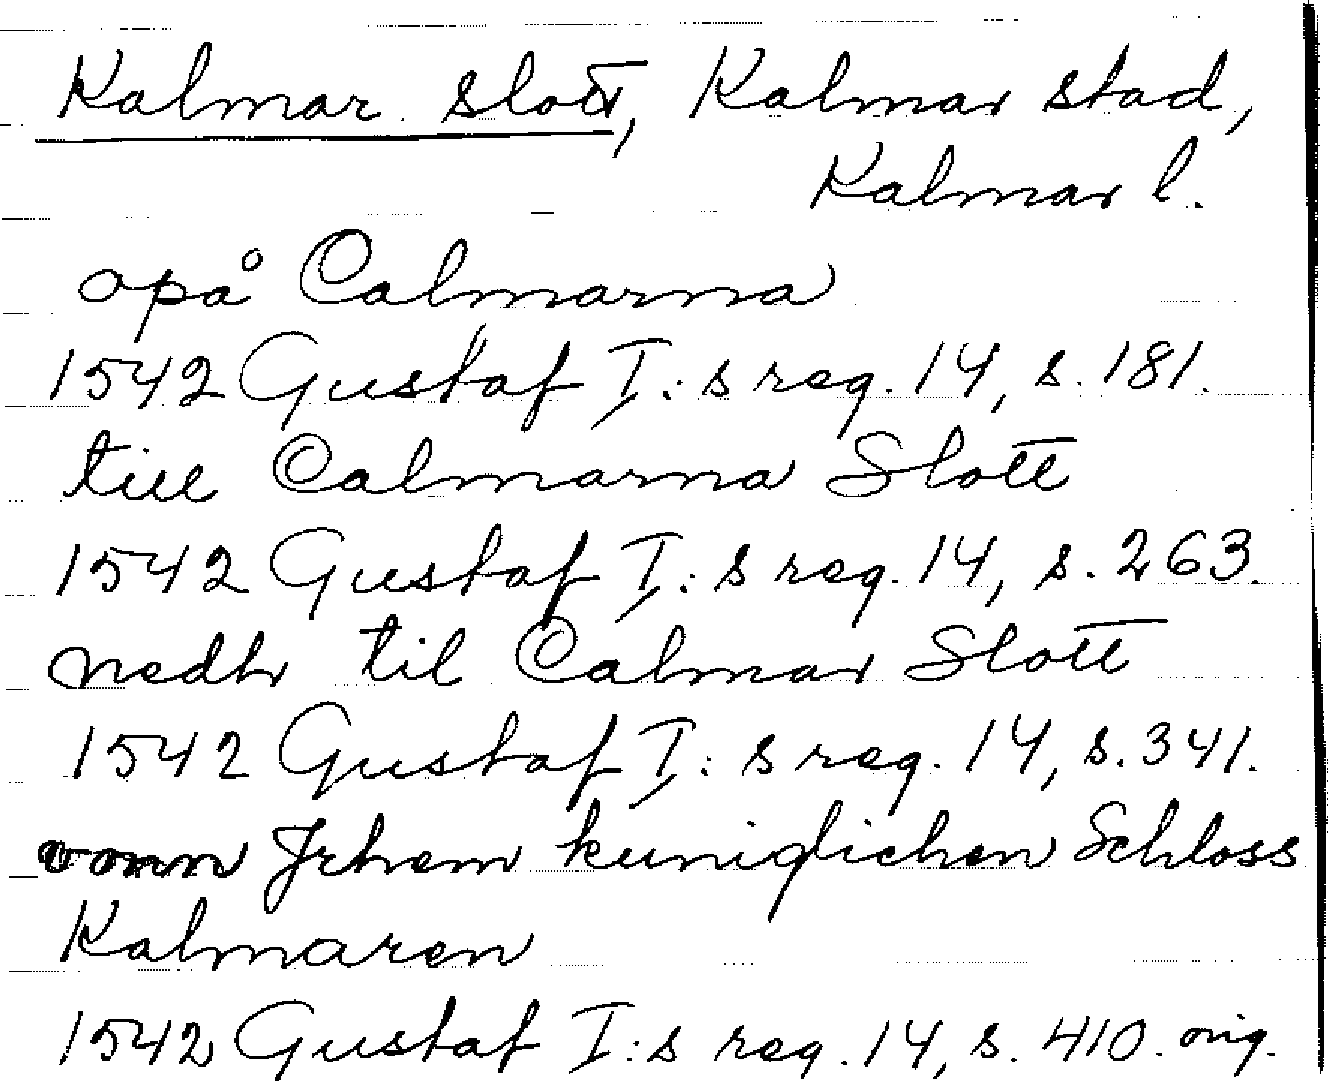 Kalmar slott, Kalmar stad,
Kalmar l.
opå Calmarna
1542 Gustaf I:s reg. 14, s. 181.
till Calmarna Slott
1542 Gustaf I:s reg. 14, s. 263.
nedhr til Calmar Slott
1542 Gustaf I:s reg. 14, s. 341.
vonn Jrhem kuniglichen Schloss
Kalmaren
1542 Gustaf I:s reg. 14, s. 410. orig.